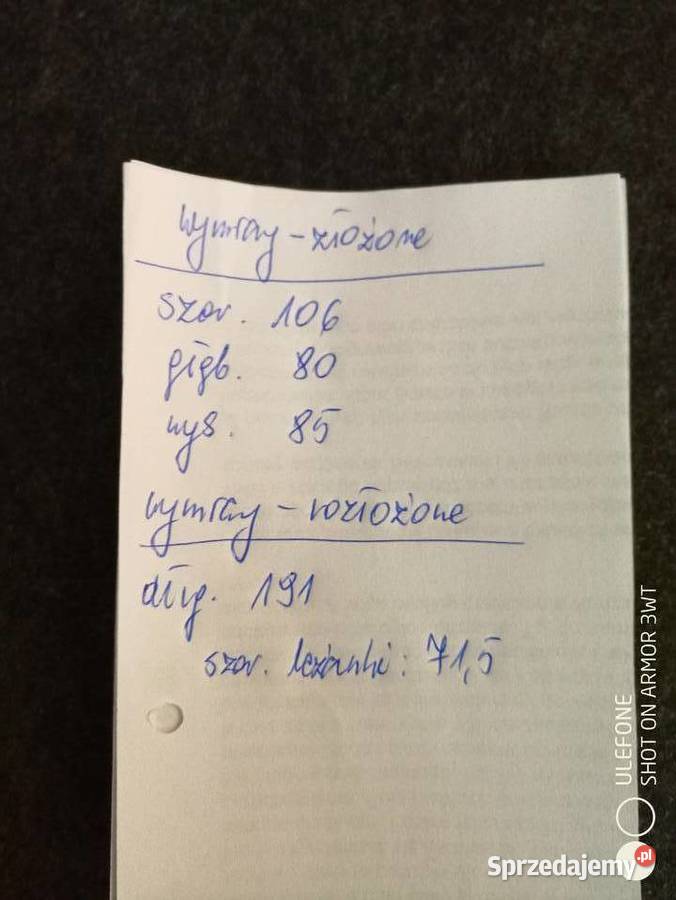 wymiary - złożone
szer. 106
głęb. 80
wys. 85
wymiary - rozłożone
dług. 191
szer. leżanki: 71,5
ULEFONE
SHOT ON ARMOR 3WT
Sprzedajemy.pl